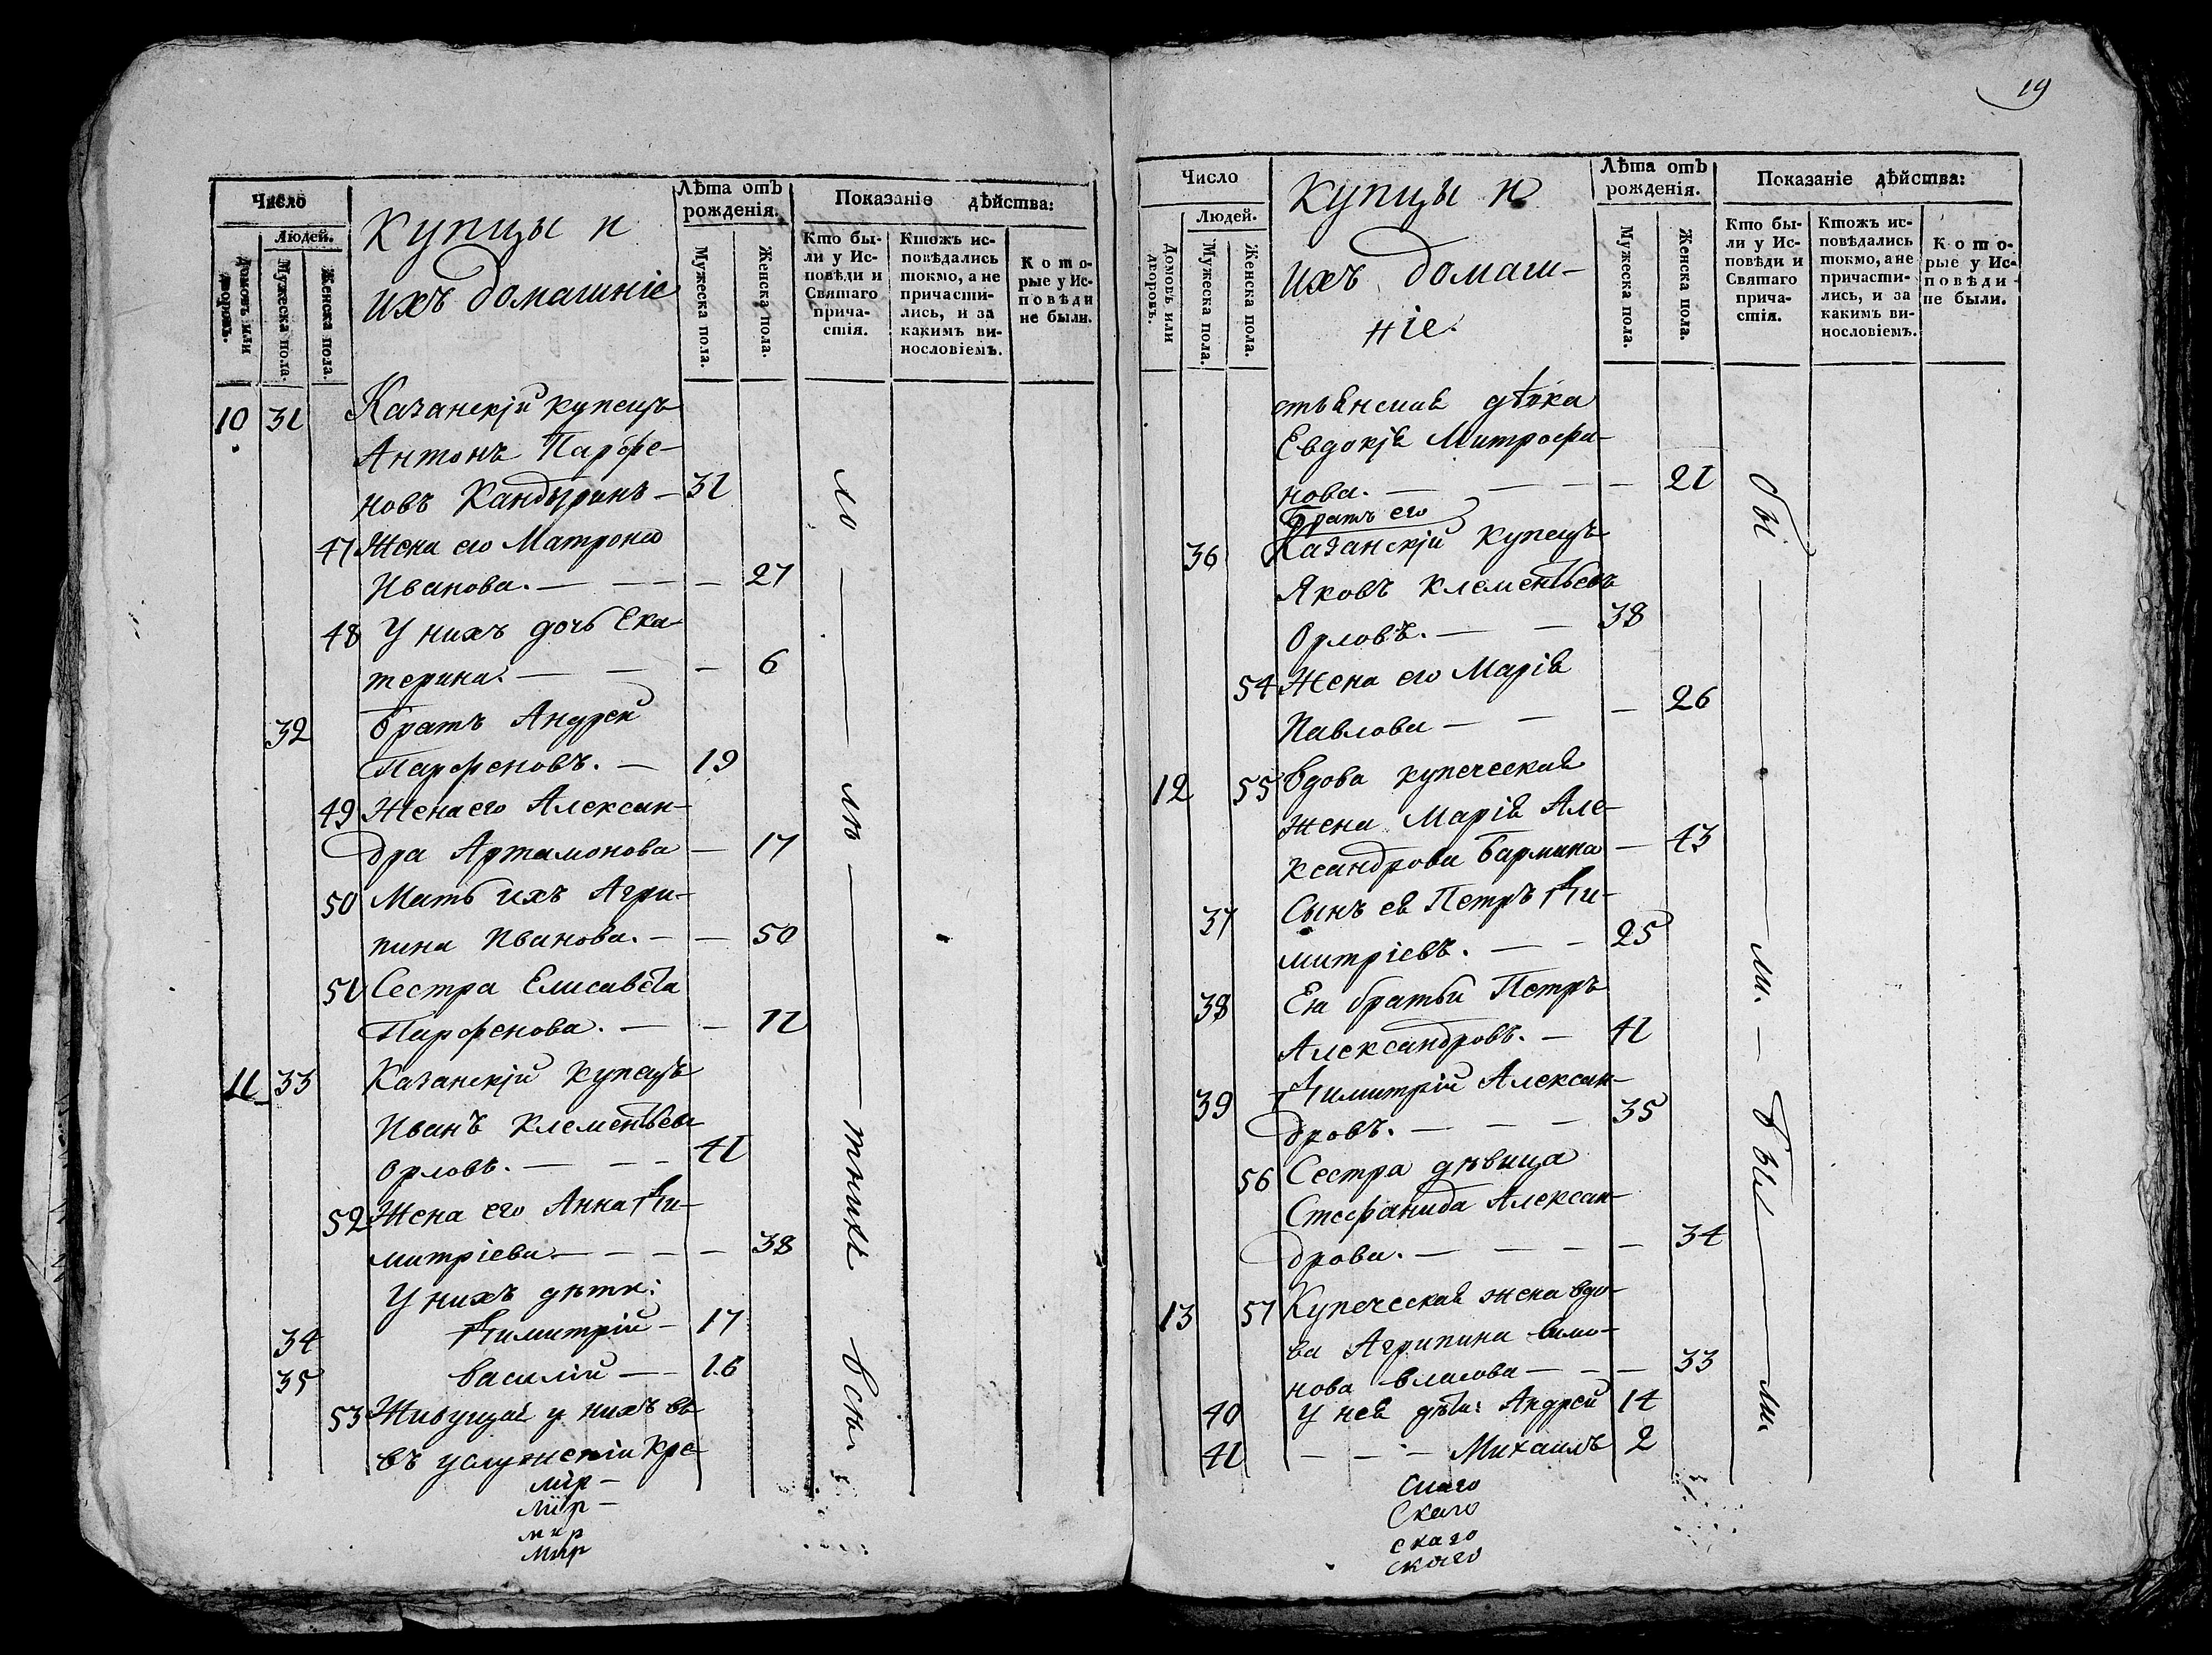 19
Число
Людей.
Домовъ или дворовъ.
Мужеска пола.
Женска пола.
Купцы и
ихъ домашніе
Лѣта отъ
рожденія.
Мужеска пола.
Женска пола.
Показаніе дѣйства:
Кто бы-
ли у Ис-
повѣди и
Святаго
прича-
стія.
Ктожъ ис-
повѣдались
токмо, а не
причасти-
лись, и за
какимъ ви-
нословіемъ.
Кото-
рые у Ис-
повѣди
не были.
10 31 Казанскій купецъ
Антонъ Парфе-
новъ Кандыринъ — 31
47 Жена его Матрона
Иванова. — — — — 27
48 У нихъ дочь Ека-
терина. — — — 6
32 Братъ Андрей
Парфеновъ. — 19
49 Жена его Алексан-
дра Артамонова — 17
50 Мать ихъ Агри-
пина Иванова. — — 50
51 Сестра Елисавета
Парфенова. — — 11
11 33 Казанскій купецъ
Иванъ Клементьевъ
Орловъ. — — — 41
52 Жена его Анна Ди-
митріева — — — — 38
У нихъ дѣти:
34 Димитрій — 17
35 Василій — — 16
53 Живущая у нихъ въ
въ услуженіи кре-
мір-
мір-
мир
мир
ло — ли — всѣ
Число
Людей.
Домовъ или дворовъ.
Мужеска пола.
Женска пола.
Купцы и
ихъ домаш-
ніе.
Лѣта отъ
рожденія.
Мужеска пола.
Женска пола.
Показаніе дѣйства:
Кто бы-
ли у Ис-
повѣди и
Святаго
прича-
стія.
Ктожъ ис-
повѣдались
токмо, а не
причасти-
лись, и за
какимъ ви-
нословіемъ.
Кото-
рые у Ис-
повѣди
не были.
стьянская дѣвка
Евдокія Митрофа-
нова. — — — — 21
Братъ его
36 Казанскій купецъ
Яковъ Клементьевъ
Орловъ. — — 38
54 Жена его Марія
Павлова — — — 26
12 55 Вдова купеческая
жена Марія Але-
ксандрова Бармина — 43
37 Сынъ ея Петръ Ди-
митріевъ. — — 25
38 Ея братьи Петръ
Александровъ. — 41
39 Димитрій Алексан-
дровъ. — — — 35
56 Сестра дѣвица
Стефанида Алексан-
дрова. — — — — 34
13 57 Купеческая жена вдо-
ва Агрипина
нова Власова — — — 33
40 У нея дѣти: Андрей 14
41 — — — Михаилъ 2
скаго
скаго
скаго
скаго
бы — ли. — бы — ли